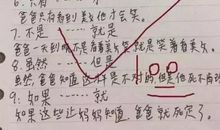 6.只有……才
爸爸只有看到美女他才会笑。
7.不是……就是
爸爸一天到晚不是看着美女就是笑着看美女。
8.虽然……但是
虽然爸爸知道这样是不对的,但是他死不肯改
9.如果……就
如果这些让妈妈知道,爸爸就死定了。
100